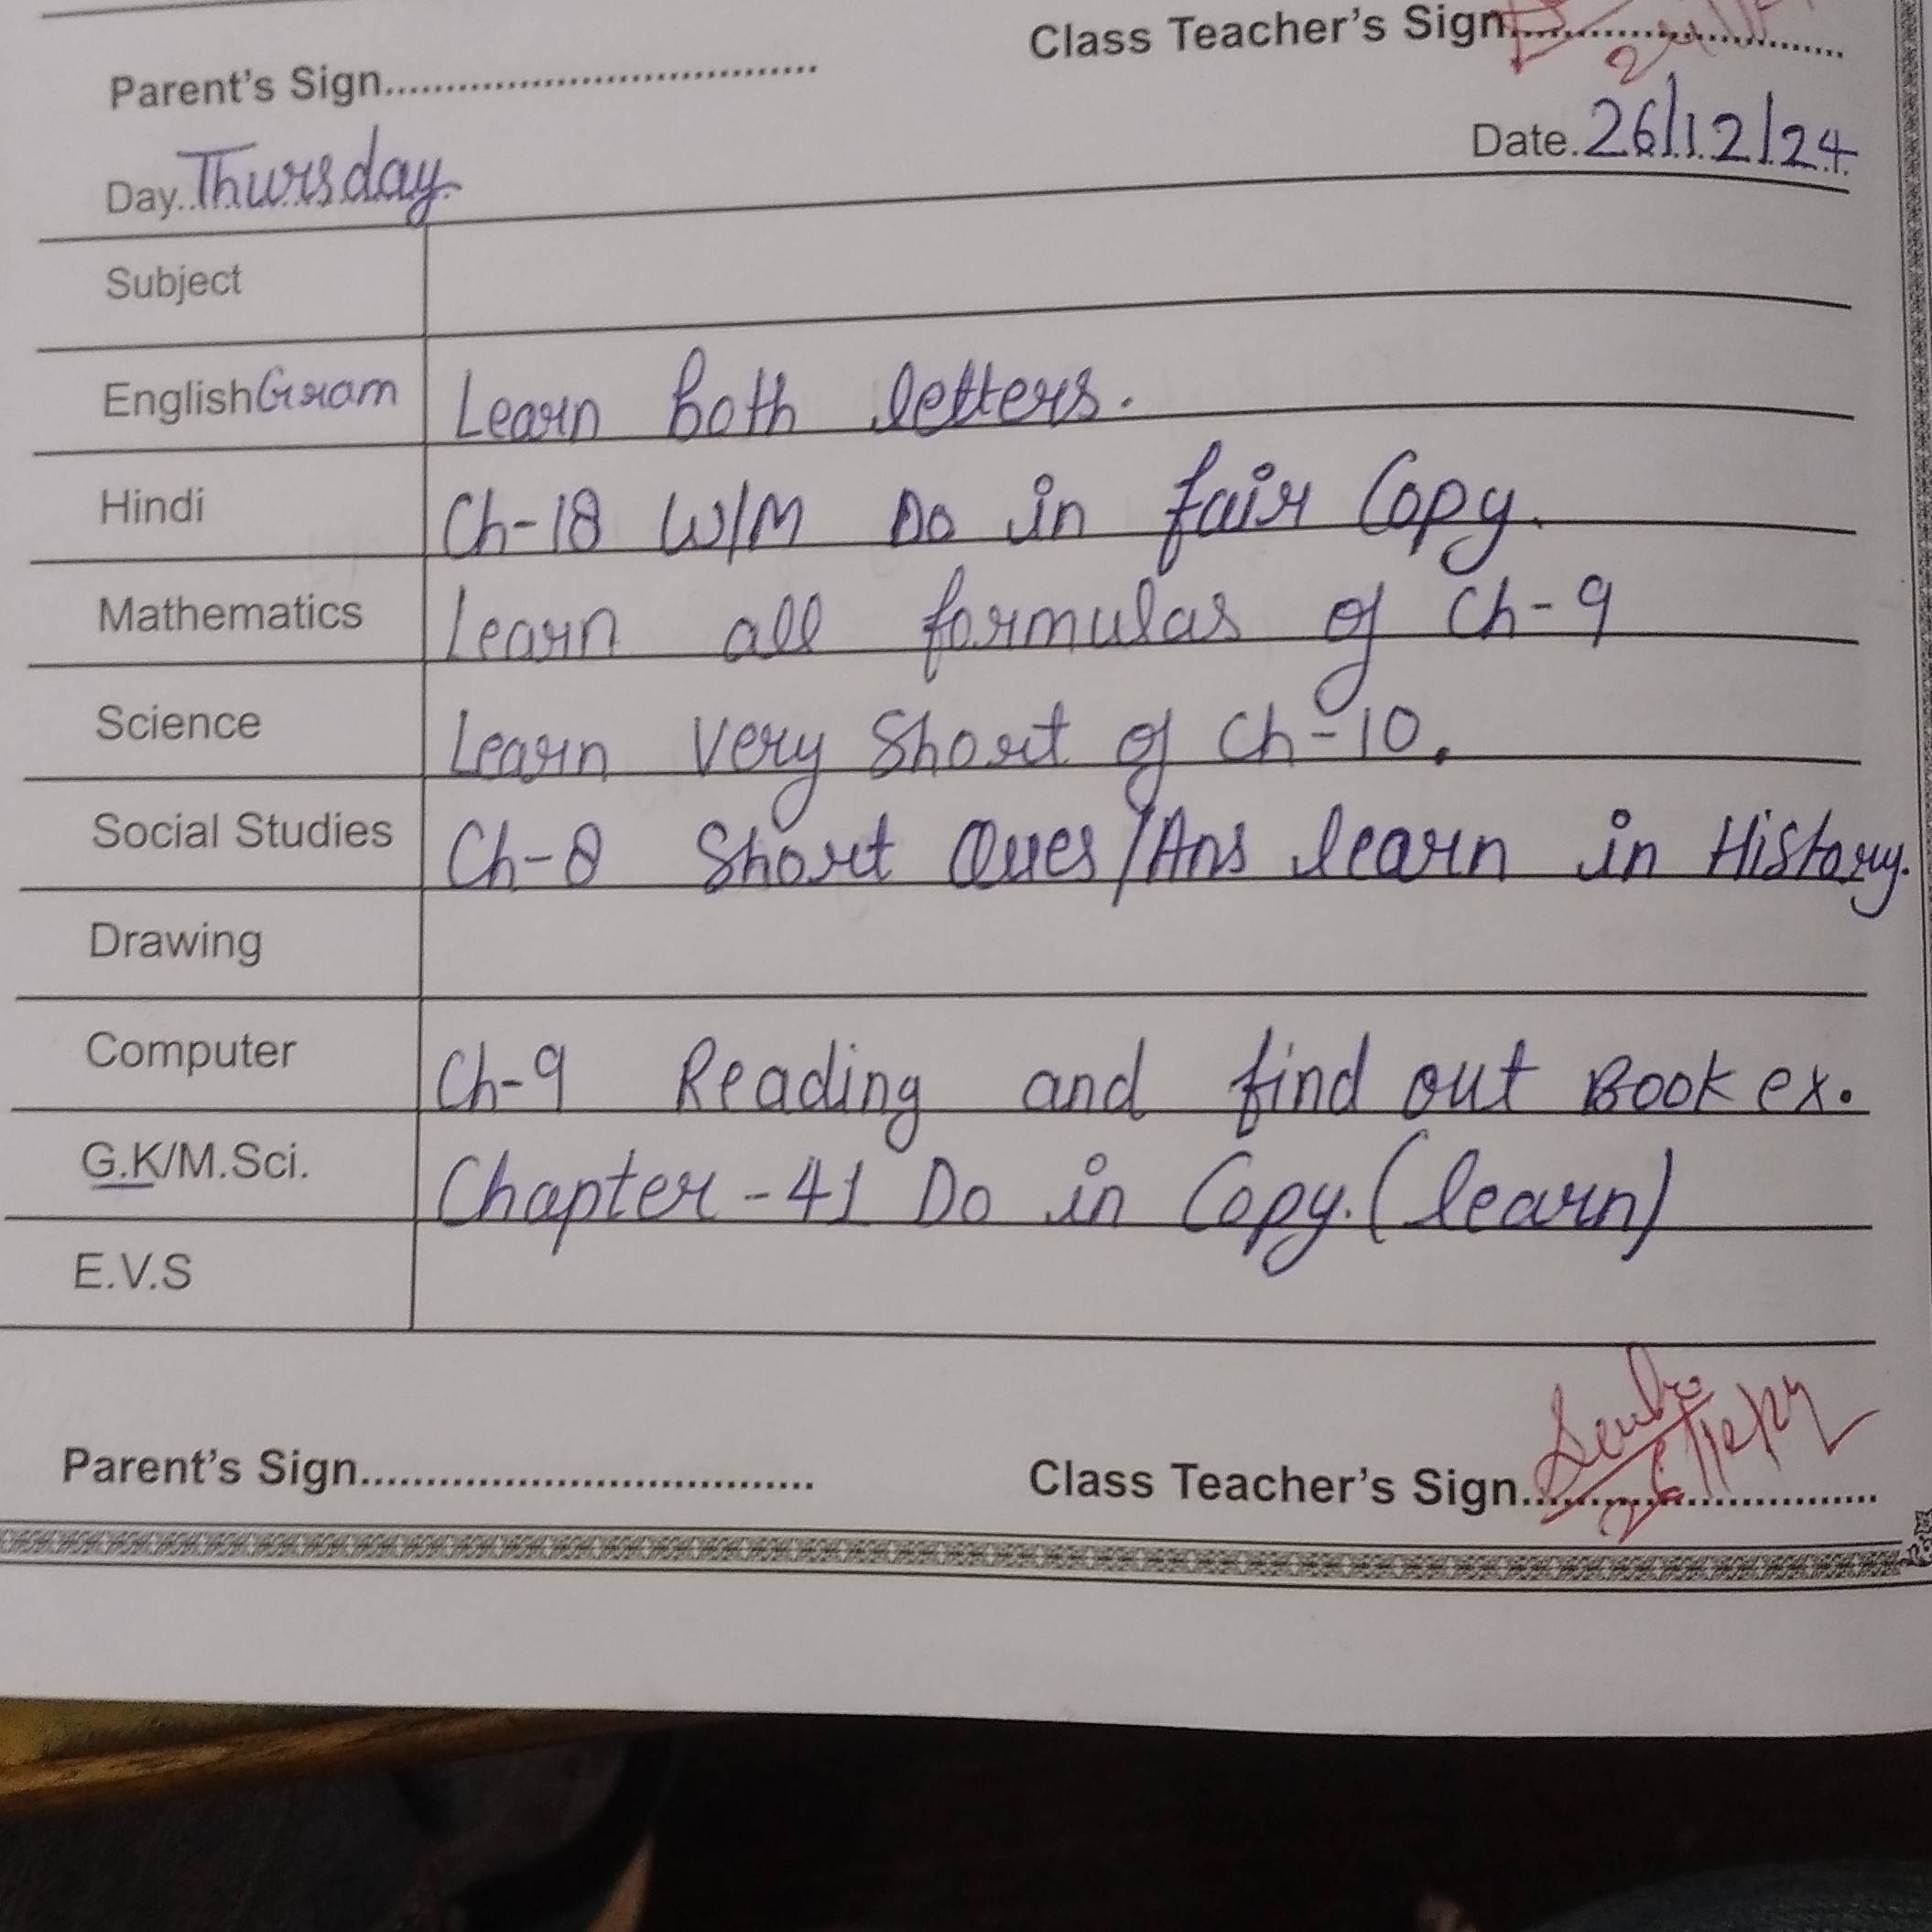 Class Teacher's Sign..............................
Parent's Sign..................................
Date.26/12/24
Day..Thursday.
Subject
English Gram Learn both letters.
Hindi Ch-18 W/M Do in fair Copy.
Mathematics Learn all formulas of Ch-9
Science Learn Very Short of Ch-10.
Social Studies Ch-8 Short Ques/Ans learn in History.
Drawing
Computer Ch-9 Reading and find out Book ex.
G.K/M.Sci. Chapter-41 Do in Copy. (learn)
E.V.S
Parent's Sign..................................
Class Teacher's Sign.............................. 26/12/24